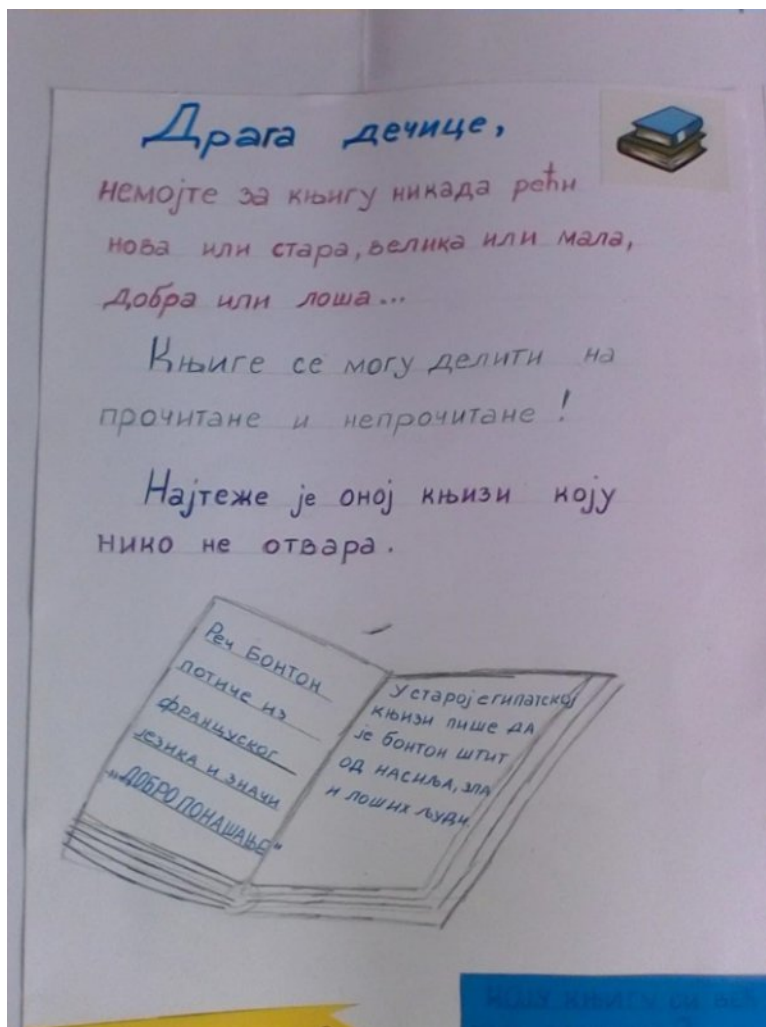 Драга дечице,
немојте за књигу никада рећи
нова или стара, велика или мала,
добра или лоша...
Књиге се могу делити на
прочитане и непрочитане!
Најтеже је оној књизи коју
нико не отвара.
Реч БОНТОН
потиче из
француског
језика и значи
„ДОБРО ПОНАШАЊЕ“
У старој египатској
књизи пише да
је бонтон штит
од насиља, зла
и лоших људи.